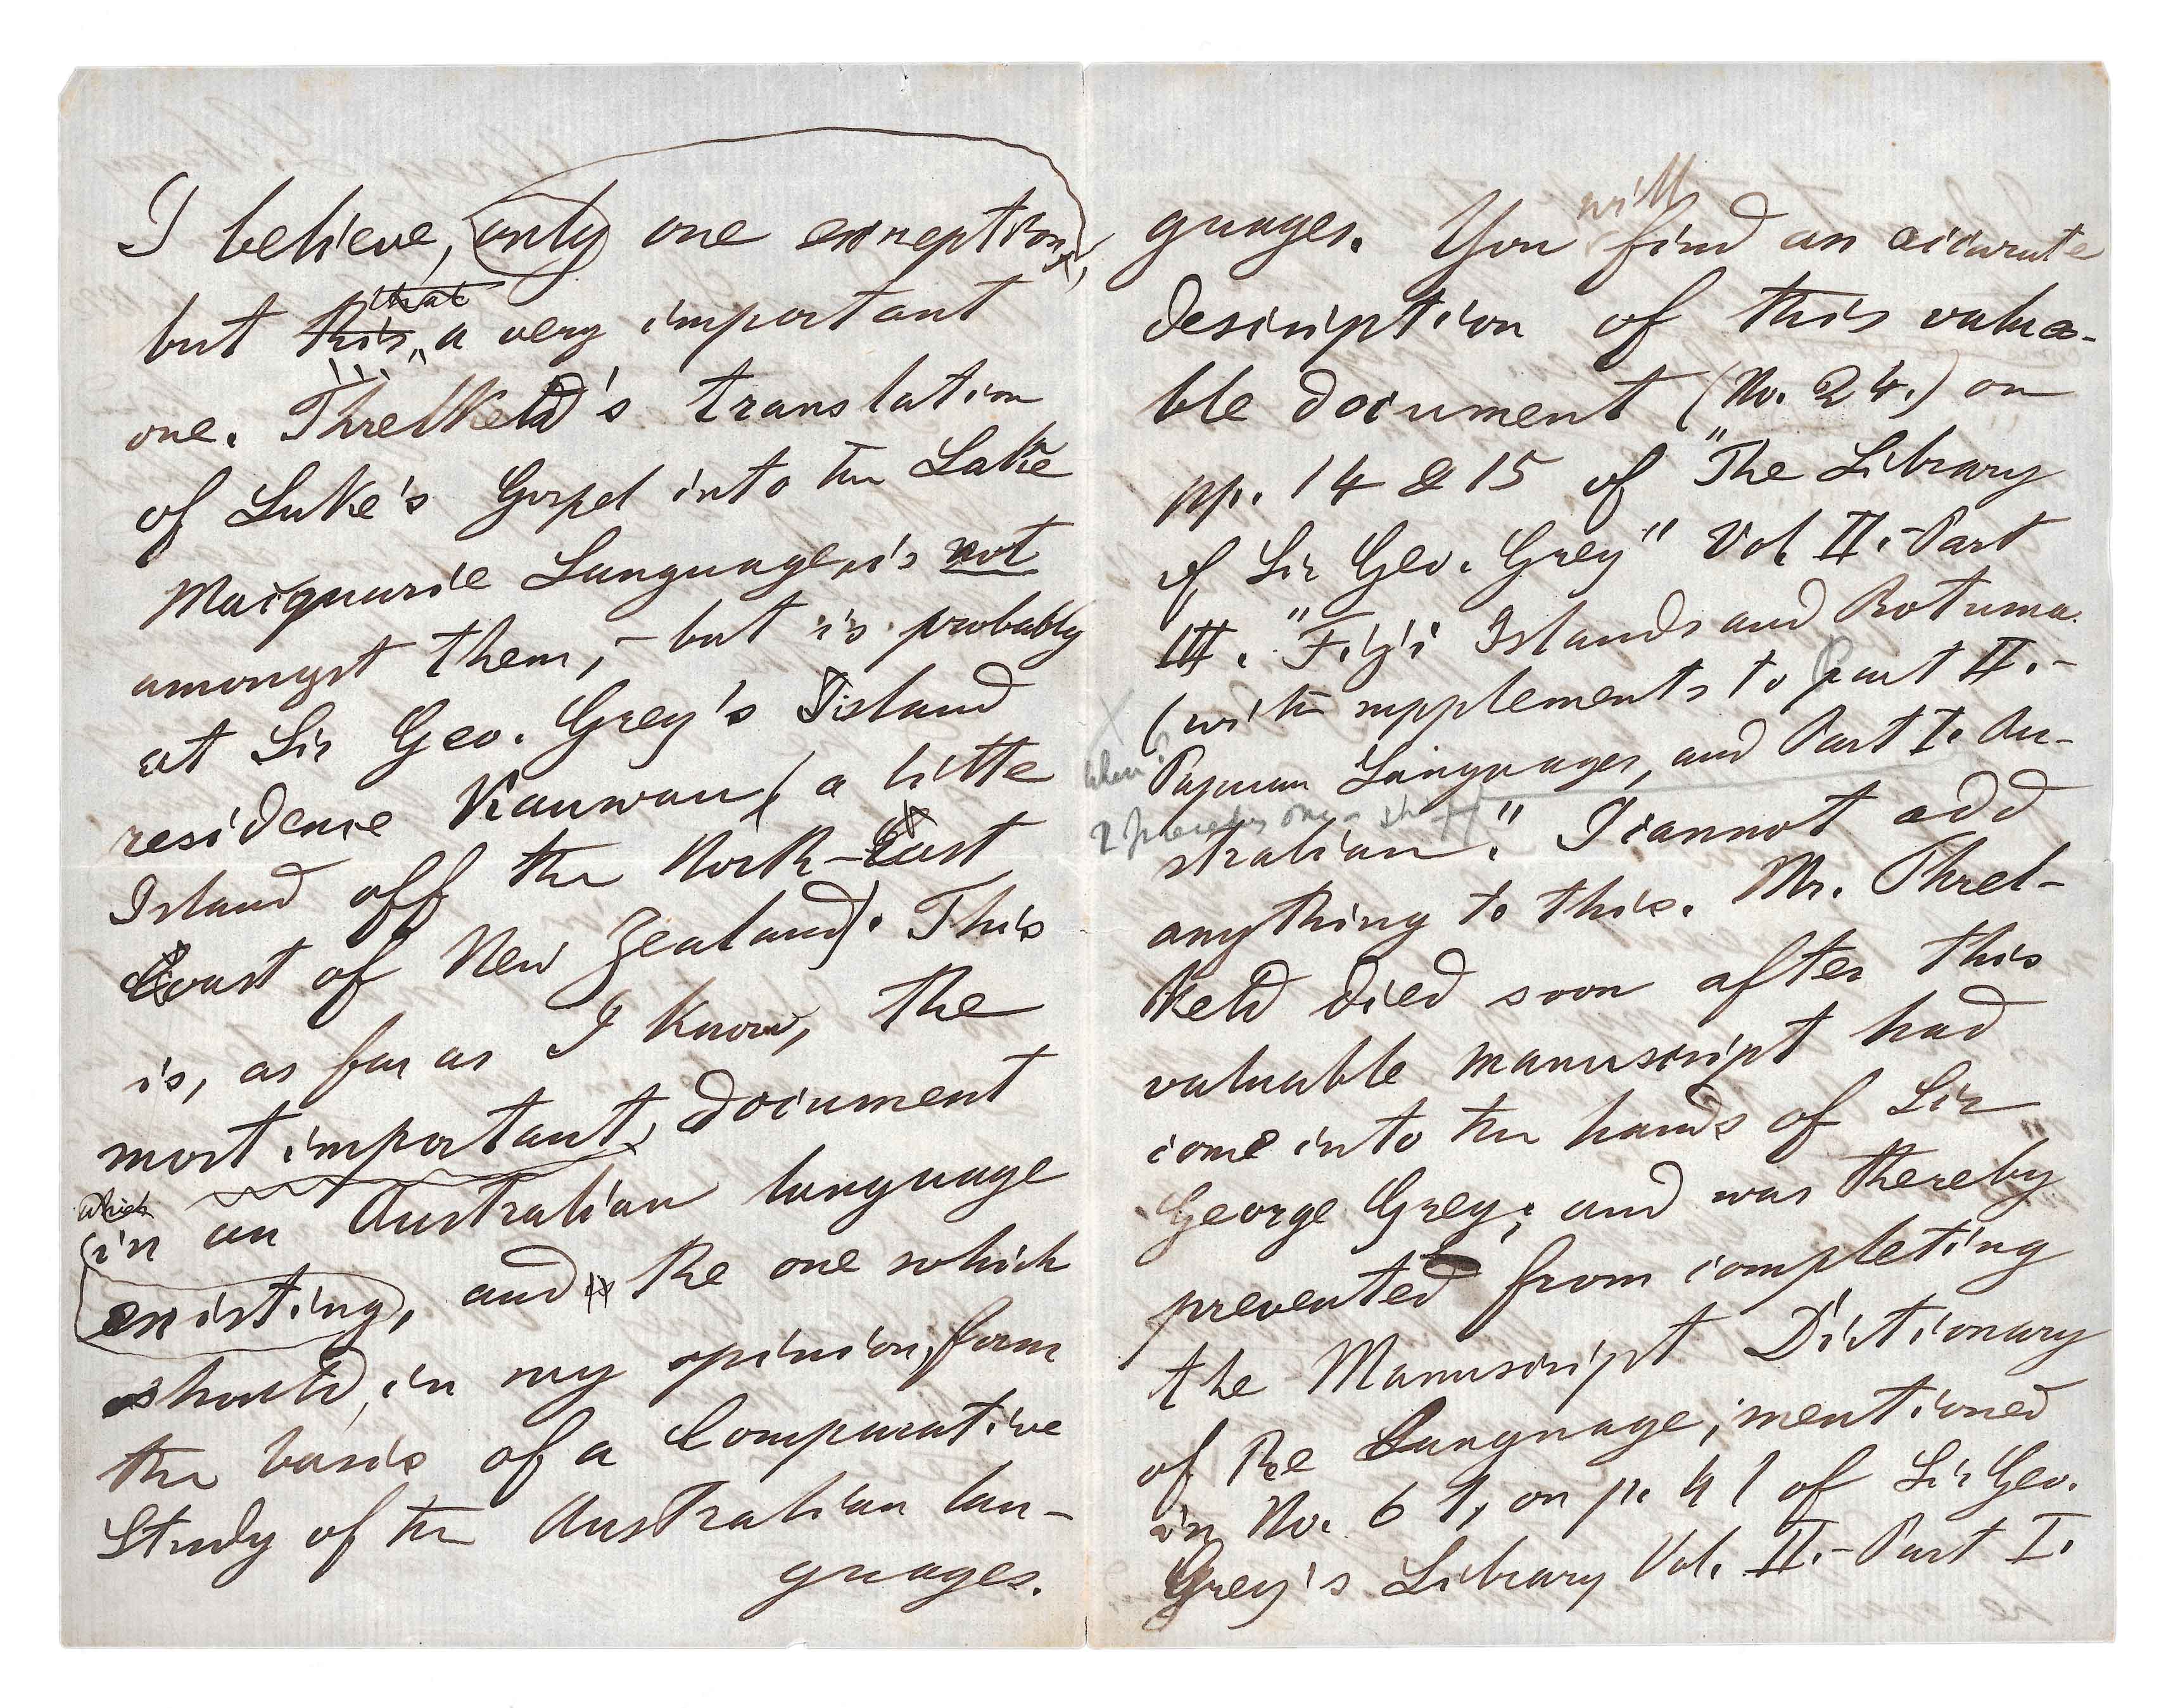 I believe, only one exception,
but this that a very important
one. Threlkeld's translation
of Luke's Gospel into the Lake
Macquarie Language, is not
amongst them, - but is probably
at Sir Geo. Grey's Island
residence Kauwau (a little
Island off the North-East
Coast of New Zealand). This
is, as far as I know, the
most important, document
which
in an Australian language
existing, and is the one which
should, in my opinion, form
the basis of a Comparative
Study of the Australian lan-
guages.
guages. You will find an accurate
description of this valua-
ble document (No. 24.) on
pp. 14 & 15 of "The Library
of Sir Geo. Grey" Vol. II.-Part
III. "Fiji Islands and Rotuma
(with supplements to Part II.-
Papuan Languages, and Part I. Au-
stralian." I cannot add
anything to this. Mr. Threl-
keld died soon after this
valuable manuscript had
come into the hands of Sir
George Grey; and was thereby
prevented from completing
the Manuscript Dictionary
of the Language, mentioned
in No. 61, on p. 41 of Sir Geo.
Grey's Library Vol. II.-Part I.